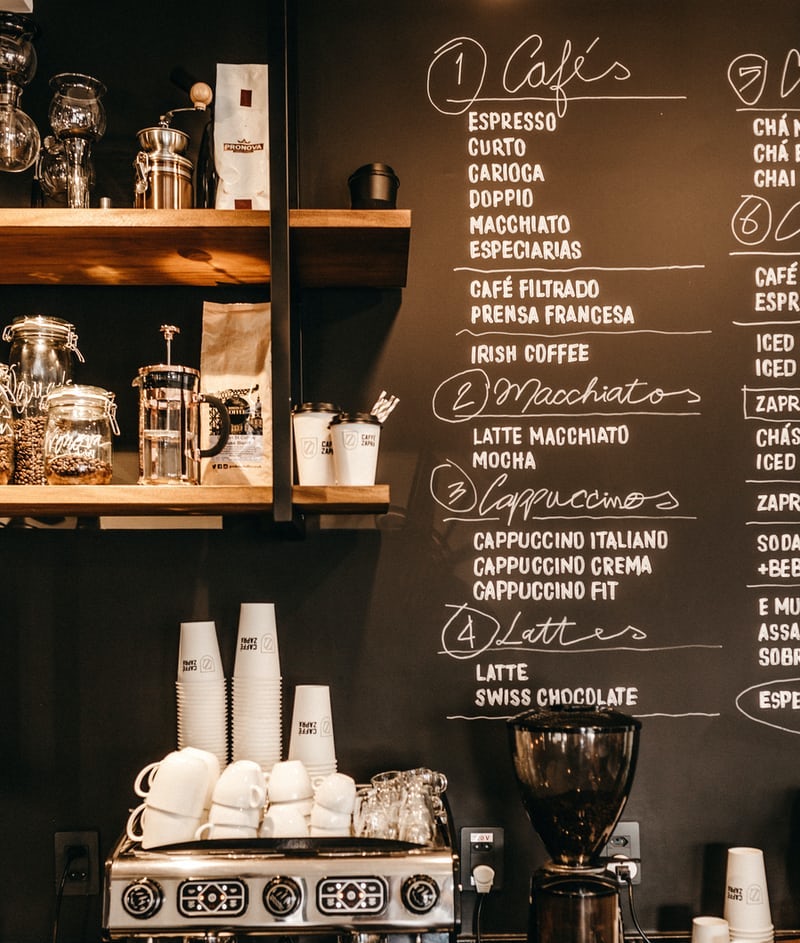 ① Cafés
ESPRESSO
CURTO
CARIOCA
DOPPIO
MACCHIATO
ESPECIARIAS
CAFÉ FILTRADO
PRENSA FRANCESA
IRISH COFFEE
② Macchiatos
LATTE MACCHIATO
MOCHA
③ Cappuccinos
CAPPUCCINO ITALIANO
CAPPUCCINO CREMA
CAPPUCCINO FIT
④ Lattes
LATTE
SWISS CHOCOLATE
⑤
CHÁ
CHÁ
CHAI
⑥
CAFÉ
ESPR
ICED
ICED
ZAPR
CHÁS
ICED
ZAPR
SODA
+BEB
E MU
ASSA
SOBR
ESPE
PRONOVA
CAFFÈ
ZAPRI
CAFFÈ
ZAPRI
CAFFÈ
ZAPRI
CAFFÈ
ZAPRI
CAFFÈ
ZAPRI